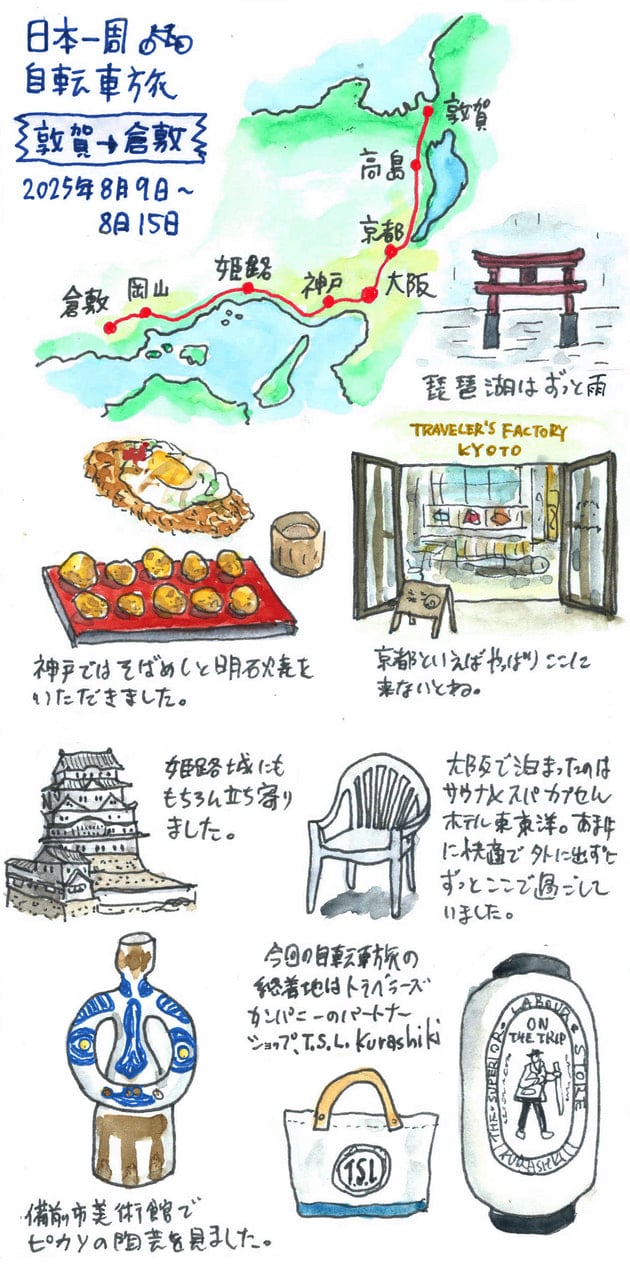 日本一周
自転車旅
敦賀→倉敷
2025年8月9日〜
8日15日
敦賀
高島
京都
大阪
神戸
姫路
岡山
倉敷
琵琶湖はずっと雨
TRAVELER'S FACTORY
KYOTO
神戸ではそばめしと明石焼を
いただきました。
京都といえばやっぱりここに
来ないとね。
姫路城にも
もちろん立ち寄り
ました。
大阪で泊まったのは
サウナ&スパ カプセル
ホテル東東洋。あまり
に快適で外に出ずに
ずっとここで過ごして
いました。
今回の自転車旅の
終着地はトラベラーズ
カンパニーのパートナー
ショップ、T.S.L. Kurashiki
T.S.L
ON
THE TRIP
THE SUPERIOR LABOUR STORE
KURASHIKI
備前市美術館で
ピカソの陶芸を見ました。